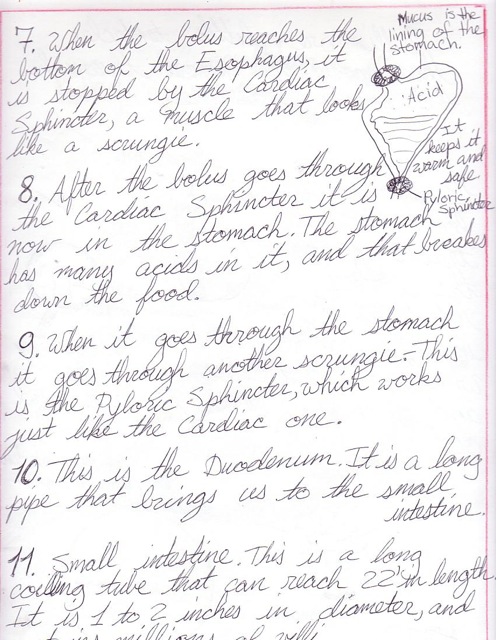 Mucus is the
lining of the
stomach.
7. When the bolus reaches the
bottom of the Esophagus, it
is stopped by the Cardiac
Sphincter, a muscle that looks
like a scrungie.
Acid
It
keeps it
warm and
safe.
Pyloric
Sphincter
8. After the bolus goes through
the Cardiac Sphincter it is
now in the stomach. The stomach
has many acids in it, and that breakes
down the food.
9. When it goes through the stomach
it goes through another scrungie. This
is the Pyloric Sphincter, which works
just like the Cardiac one.
10. This is the Duodenum. It is a long
pipe that brings us to the small
intestine.
11. Small intestine. This is a long
coiling tube that can reach 22' in length.
It is 1 to 2 inches in diameter, and
millions of villi